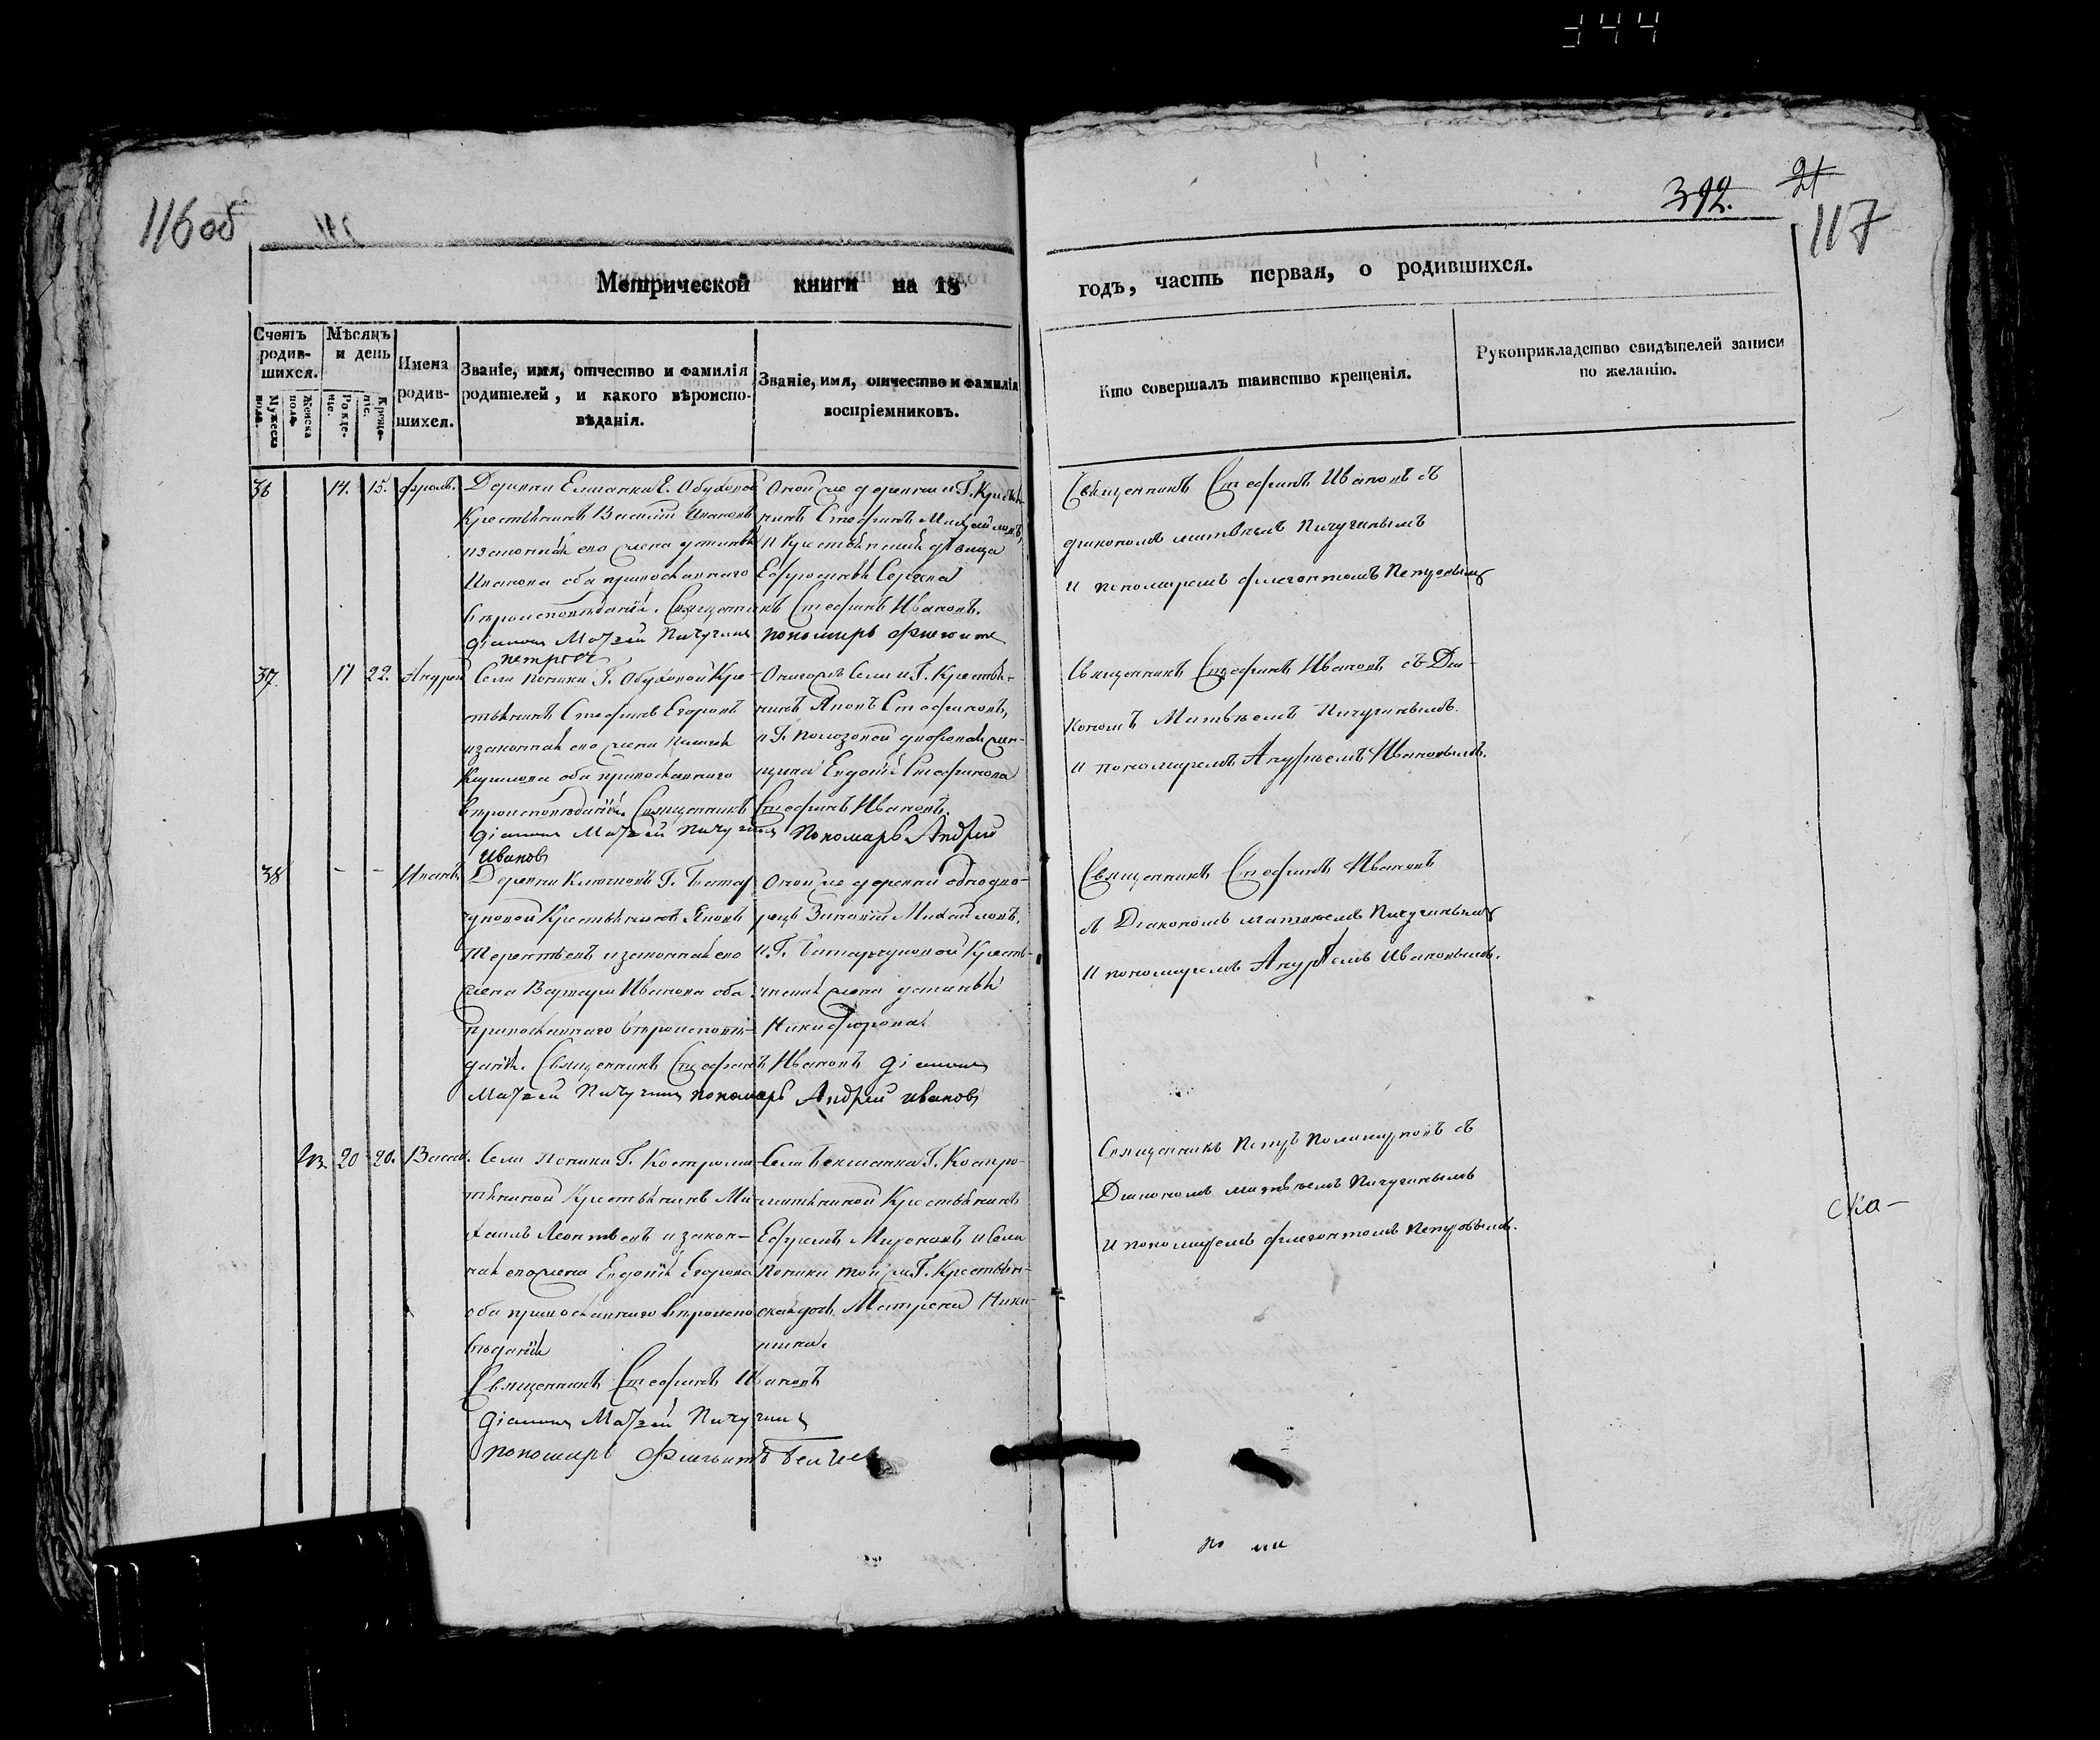 116 об
392.
21
117
Метрической книги на 18
годъ, часть первая, о родившихся.
Счетъ родив-шихся.
Мужеска пола.
Женска пола.
Мѣсяцъ и день
Рожде-нія.
Креще-нія.
Имена родив-шихся.
Званіе, имя, отчество и фамилія
родителей, и какого вѣроиспо-
вѣданія.
Званіе, имя, отчество и фамилія
воспріемниковъ.
Кто совершалъ таинство крещенія.
Рукоприкладство свидѣтелей записи
по желанію.
36
14. 15.
Фролъ.
Деревни Г. Обуховой
Крестьянинъ Василій Ивановъ
изаконная его жена устинья
Иванова оба православнаго
вѣроисповѣданія. Священникъ Стефанъ Ивановъ.
діаконъ Матвей Пичугинъ пономарь
петровъ
Оной же деревни и Г. Крестья-
нинъ Стефанъ Михайловъ,
и Крестьянская дѣвица
Ефросинья Сергеева
Священникъ Стефанъ Ивановъ съ
диакономъ матвѣемъ Пичугинымъ
и пономаремъ флегонтомъ Петровымъ
37.
17 22.
Андрей
Села Г. Обуховой Кре-
стьянинъ Стефанъ Егоровъ
изаконная его жена
Кирилова оба православнаго
вѣроисповѣданія. Священникъ Стефанъ Ивановъ.
діаконъ Матвей Пичугинъ Пономарь Андрей
Ивановъ
Оногожъ Села и Г. Крестья-
нинъ Яковъ Стефановъ,
и Г. дворовая жен-
щина Евдокія Стефанова
Священникъ Стефанъ Ивановъ съ Диа-
кономъ Матвѣемъ Пичугинымъ
и пономаремъ Андреемъ Ивановымъ.
38
- -
Иванъ
Деревни Г.
Крестьянинъ Яковъ
Терентьевъ изаконная его
жена Варвара Иванова оба
православнаго вѣроисповѣ-
данія. Священникъ Стефанъ Ивановъ діаконъ
Матвей Пичугинъ пономарь Андрей ивановъ
Оной же деревни однодво-
рецъ Зиновій Михайловъ,
и Г. Кресть-
янская жена устинья
Никифорова.
Священникъ Стефанъ Ивановъ
съ Диакономъ матвѣемъ Пичугинымъ
и пономаремъ Андреемъ Ивановымъ.
20 20.
Васил.
Села Г. Костроми-
тиновой Крестьянинъ Ми-
хаилъ Леонтьевъ и закон-
ная его жена Евдокія Егорова
оба православнаго вѣроиспо
вѣданія
Священникъ Стефанъ Ивановъ
діаконъ Матвей Пичугинъ
пономарь
Села Г. Костро-
митиновой Крестьянинъ
Ефремъ Мироновъ и Села
той же Г. Крестьян-
ская дочь Матрена Ники-
тина.
Священникъ Петръ съ
Диакономъ матвѣемъ Пичугинымъ
и пономаремъ флегонтомъ Петровымъ.
ска-
по